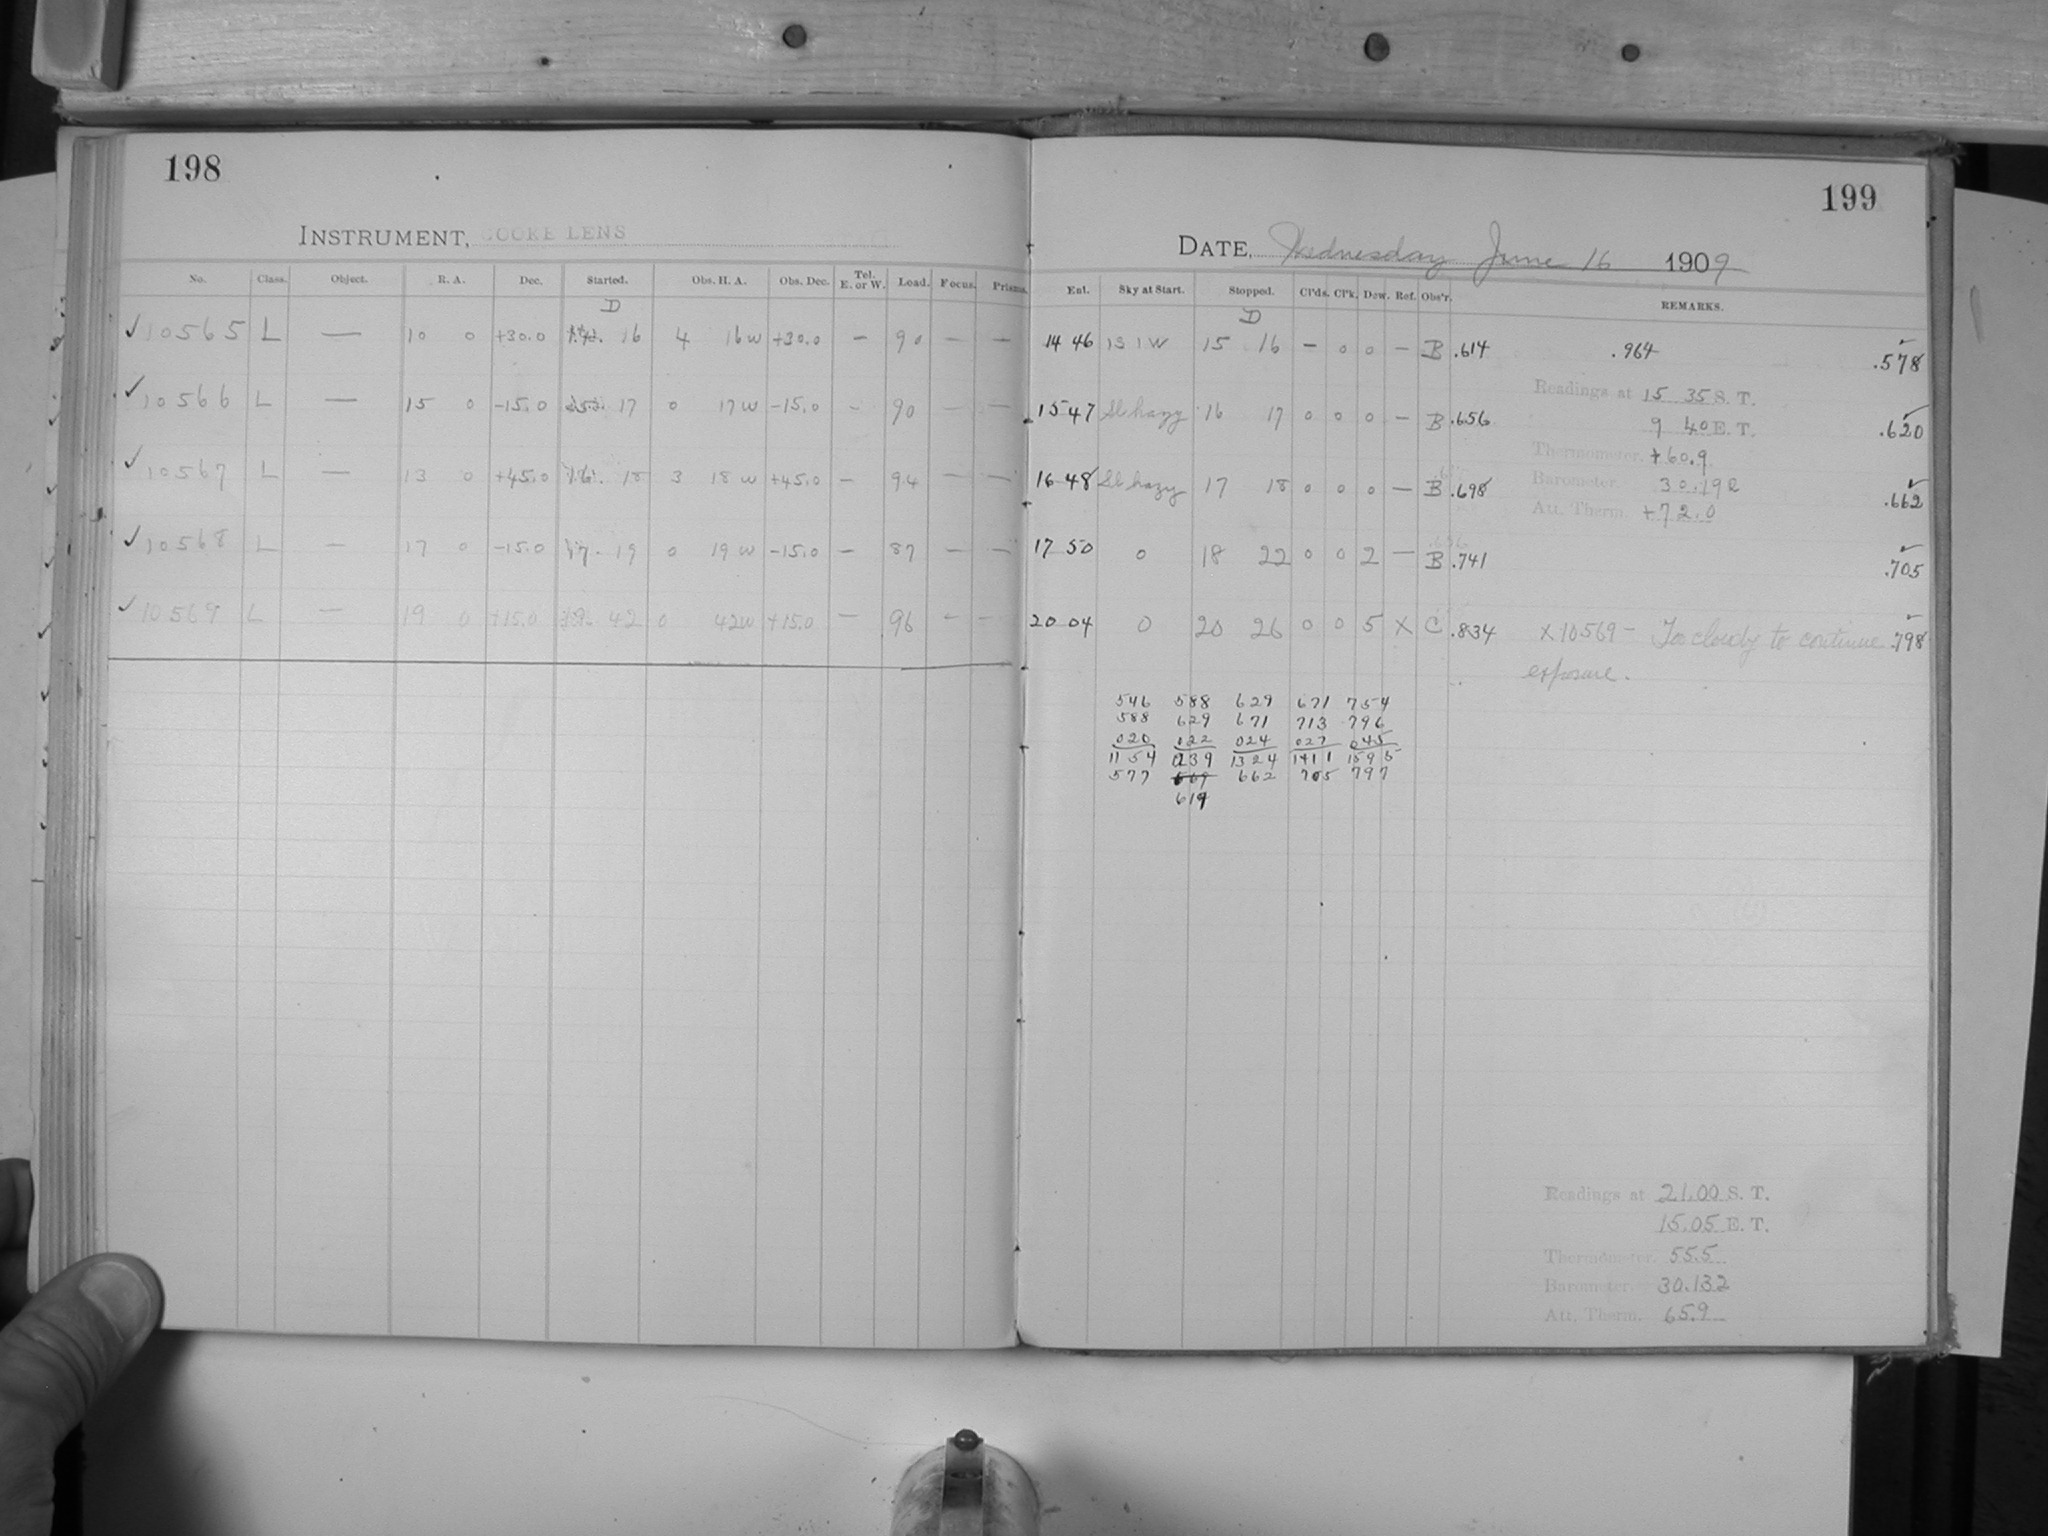 198
INSTRUMENT, COOKE LENS
No. Class. Object. R. A. Dec. Started. Obs. H. A. Obs. Dec. Tel. E. or W. Load. Focus. Prisms.
D
✓ 10565 L — 10 0 +30.0 14 16 4 16 W +30.0 — 90 — —
✓ 10566 L — 15 0 -15.0 15 17 0 17 W -15.0 — 90 — —
✓ 10567 L — 13 0 +45.0 16 18 3 18 W +45.0 — 94 — —
✓ 10568 L — 17 0 -15.0 17 19 0 19 W -15.0 — 87 — —
✓ 10569 L — 19 0 +15.0 19 42 0 42 W +15.0 — 96 — —
199
DATE, Wednesday June 16 1909
Ent. Sky at Start. Stopped. Cl'ds. Cl'k. Dew. Ref. Obs'r. REMARKS.
D
14 46 1S 1W 15 16 — 0 0 — B .614 .964 .578
Readings at 15 35 S. T.
15 47 Sl hazy 16 17 0 0 0 — B .656 9 40 E. T. .620
Thermometer. +60.9
16 48 Sl hazy 17 18 0 0 0 — B .698 Barometer. 30.192 .662
Att. Therm. +72.0
17 50 0 18 22 0 0 2 — B .741 .705
20 04 0 20 26 0 0 5 X C .834 X 10569 - Too cloudy to continue .798
exposure.
546 588 629 671 754
588 629 671 713 796
020 022 024 027 045
1154 1239 1324 1411 1595
577 662 705 797
619
Readings at 21.00 S. T.
15.05 E. T.
Thermometer. 55.5
Barometer. 30.132
Att. Therm. 65.9